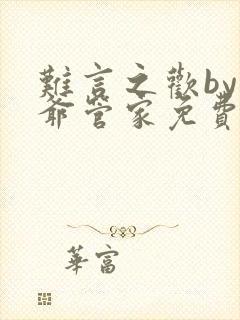 難言之歡by
爺管家免費
華富